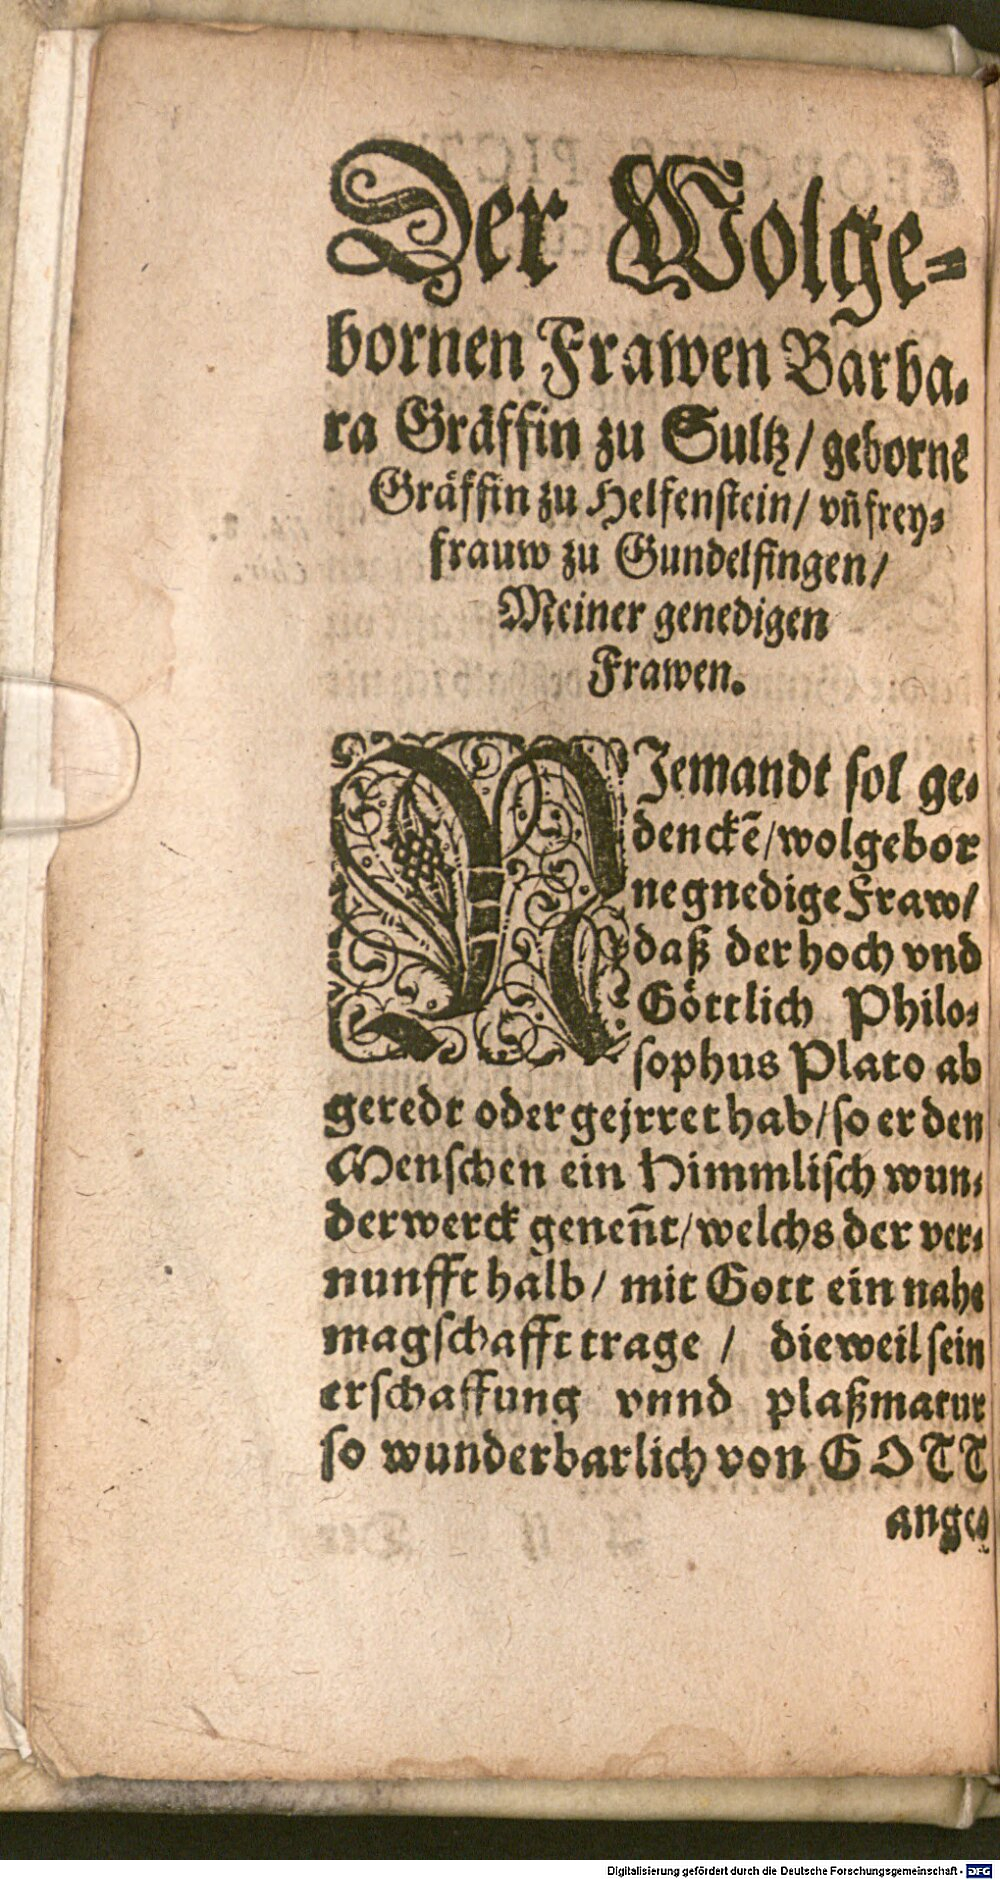 Der Wolge-
bornen Frawen Barba-
ra Gräffin zu Sultz/ gebornē
Gräffin zu Helfenstein/ vñ frey-
frauw zu Gundelfingen/
Meiner genedigen
Frawen.
NJemandt sol ge-
denckē/wolgebor
ne gnedige Fraw/
daß der hoch vnd
Göttlich Philo-
sophus Plato ab
geredt oder gejrret hab/so er den
Menschen ein Himmlisch wun-
derwerck geneñt/welchs der ver-
nunfft halb/ mit Gott ein nahe
magschafft trage / dieweil sein
erschaffung vnnd plaßmatur
so wunderbarlich von GOTT
ange-
Digitalisierung gefördert durch die Deutsche Forschungsgemeinschaft - DFG